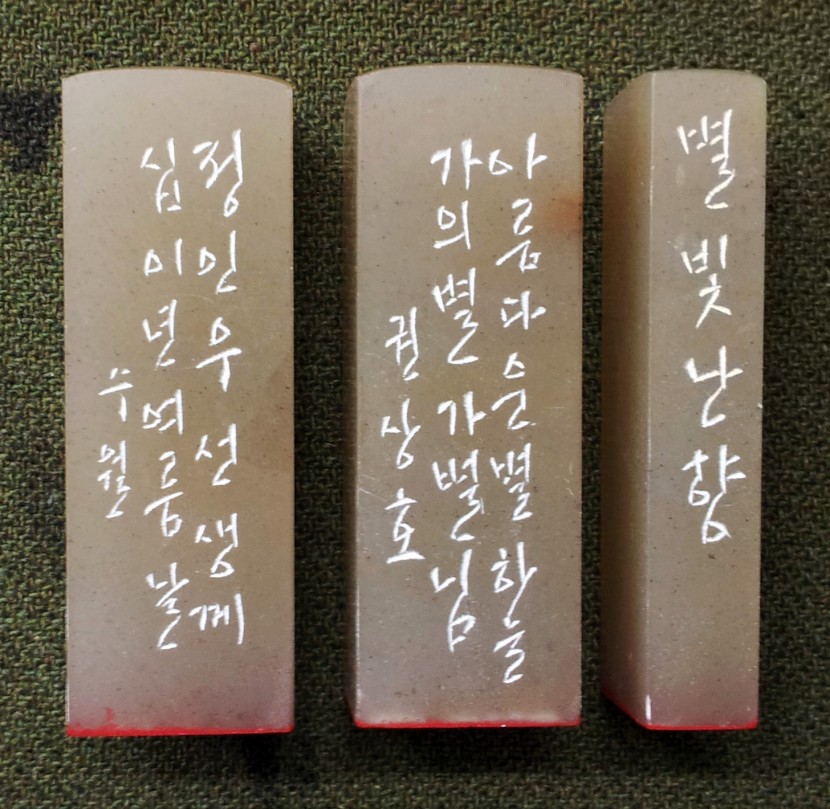 정민우선생께
십이년여름날
수월
아름다운별하늘
가의별가별님
권상호
별빛난향